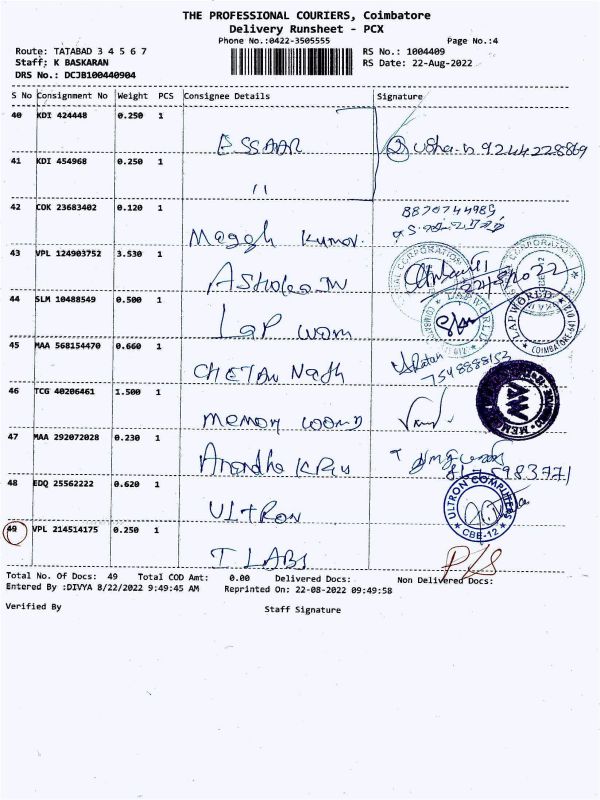 THE PROFESSIONAL COURIERS, Coimbatore
Delivery Runsheet - PCX
Phone No.:0422-3505555 Page No.:4
Route: TATABAD 3 4 5 6 7 RS No.: 1004409
Staff: K BASKARAN RS Date: 22-Aug-2022
DRS No.: DCJB100440904
S No Consignment No Weight PCS Consignee Details Signature
40 KDI 424448 0.250 1
ESSAAR Usha.n 9244228869
41 KDI 454968 0.250 1
"
42 COK 23683402 0.120 1 8870744985
Magesh Kumar
43 VPL 124903752 3.530 1
22/8/2022
44 SLM 10488549 0.500 1
LAP WORLD
LAP WORLD
COIMBATORE-641 012
45 MAA 568154470 0.660 1
CHETAN Nath Ratan
7548888153
46 TCG 40206461 1.500 1
memory WORLD
47 MAA 292072028 0.230 1
8175983771
48 EDQ 25562222 0.620 1
ULTRON
ULTRON COMPUTERS
CBE-12
49 VPL 214514175 0.250 1
T LABS
Total No. Of Docs: 49 Total COD Amt: 0.00 Delivered Docs: Non Delivered Docs:
Entered By :DIVYA 8/22/2022 9:49:45 AM Reprinted On: 22-08-2022 09:49:58
Verified By Staff Signature